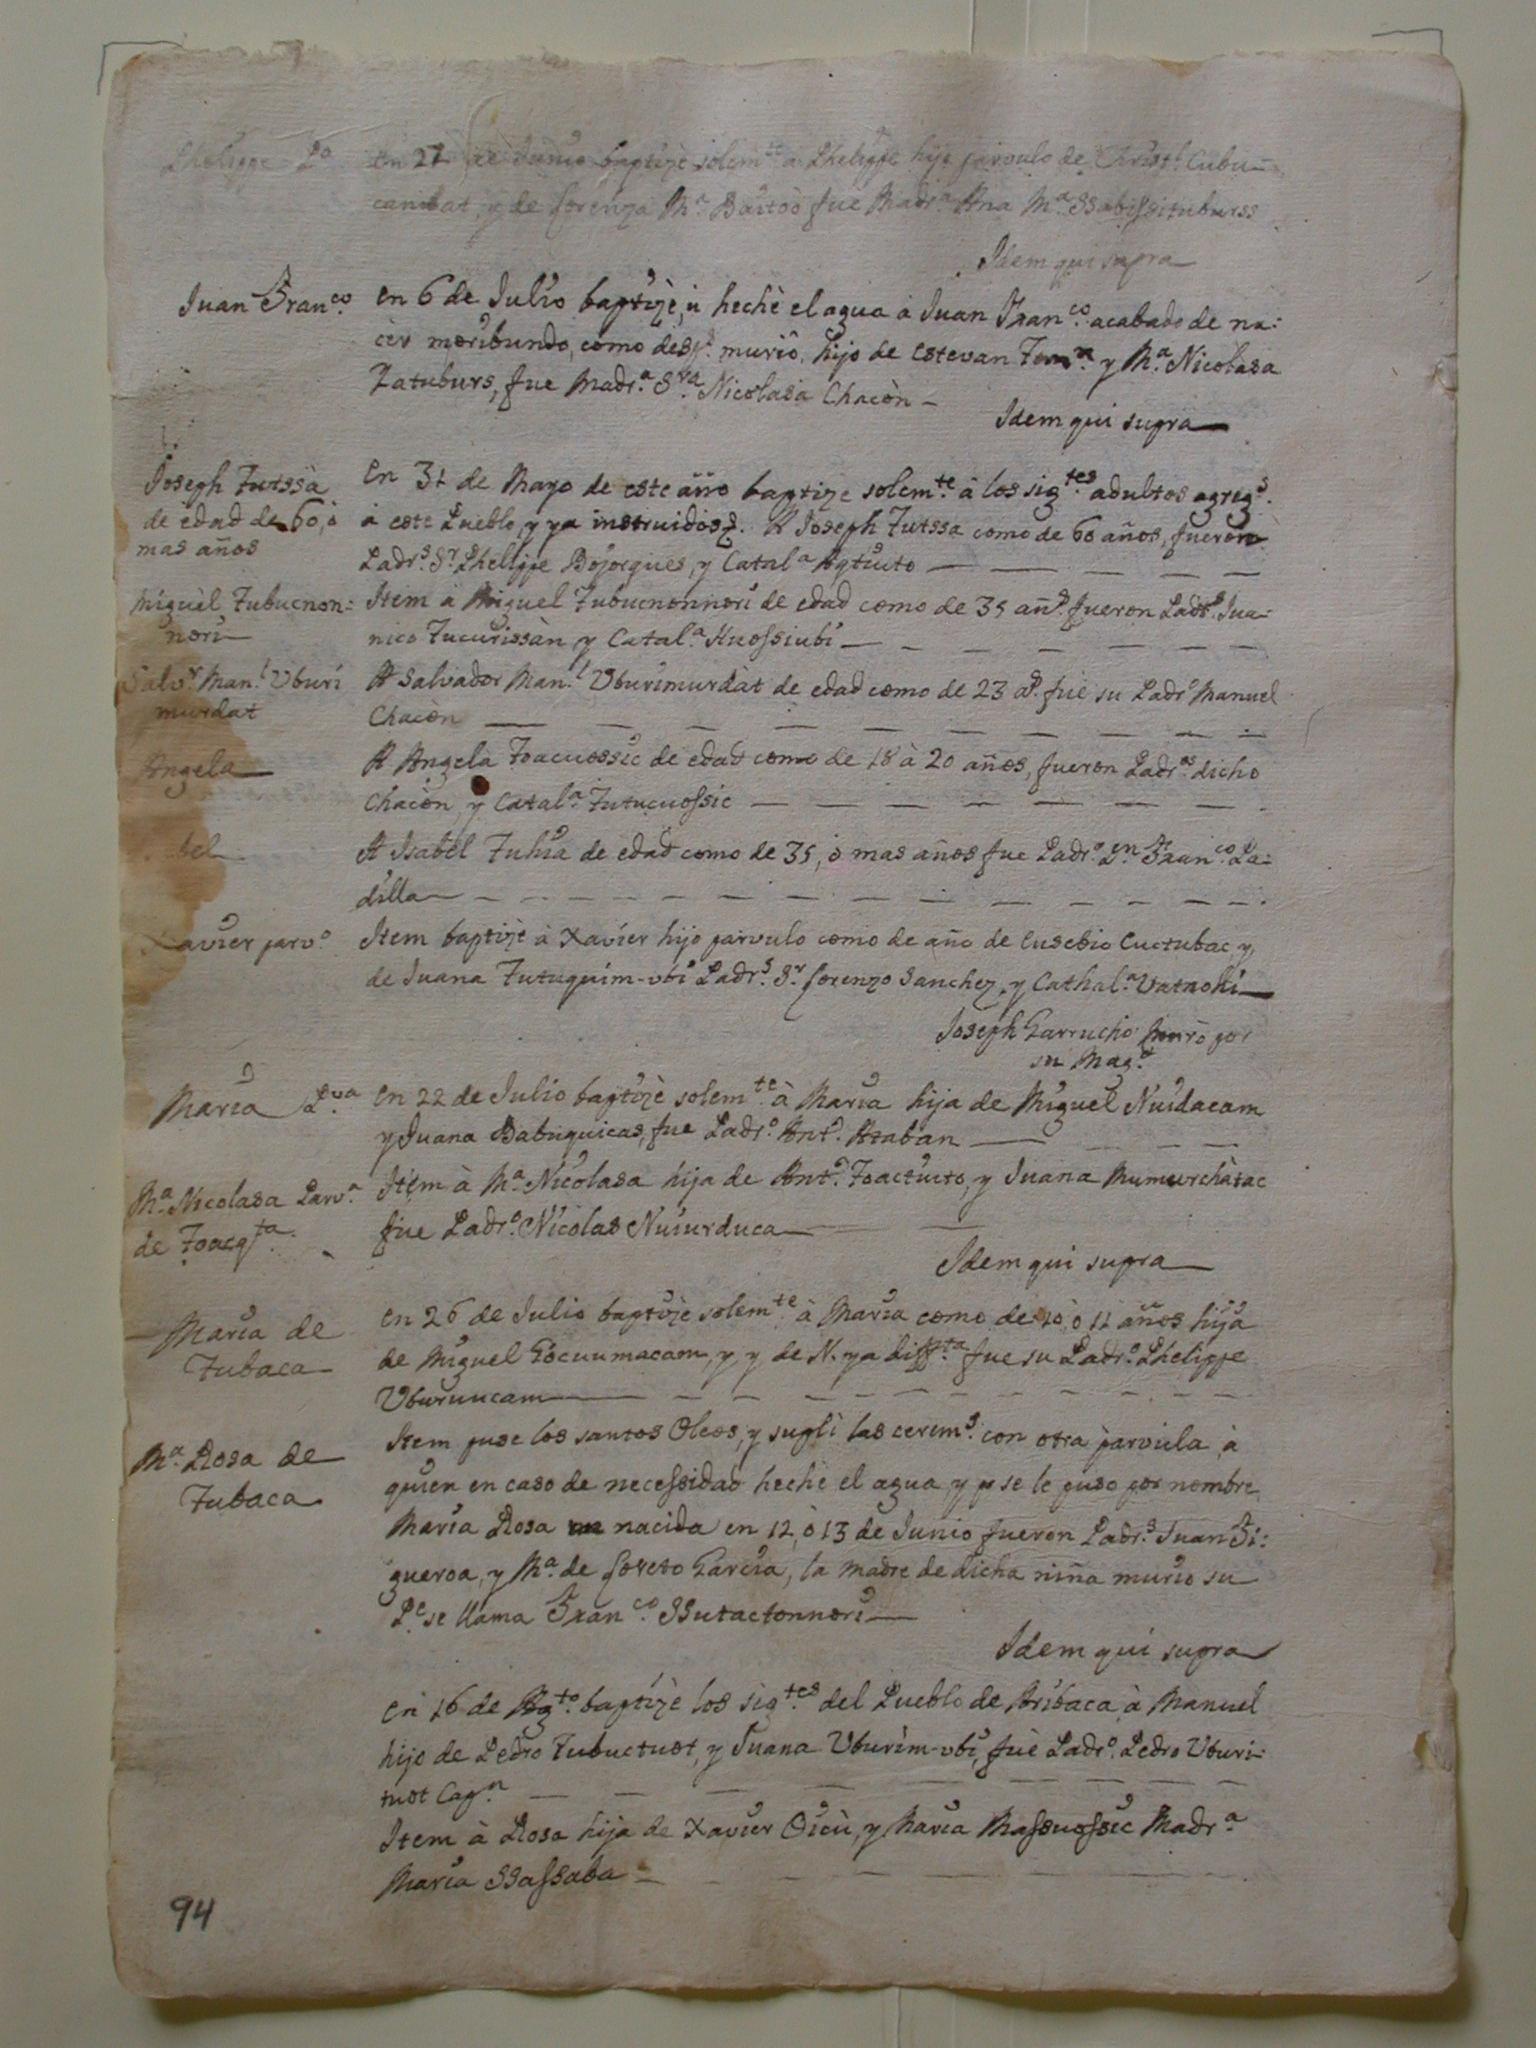 Phelippe Po
en 22 de Junio baptizè solemte a Phelippe hijo parvulo de Christl Cubu-
canibat, y de Lorenza Ma Bauto fue Madra Ana Ma SSabissituburss
Idem qui supra
Juan Franco. en 6 de Julio baptizè, ù hechè el agua à Juan Franco. acabado de na:
cer moribundo, como desps. murio, hijo de Estevan Toma y Ma. Nicolasa
Zatuburs, fue Madra. Sra. Nicolasa Chacòn -
Idem qui supra
Joseph Tutssà
de edad de 60, ò
mas años
en 31 de Mayo de este año baptize solemte. à los sigtes adultos agregs.
à este Pueblo, y ya instruidos. A Joseph Tutssa como de 60 años, fueron
Padrs. Sr. Phelippe Bojorques, y Catala Aqtuito
Miguèl Tubucnon=
nori
Item a Miguel Tubucnonnori de edad como de 35 añs. fueron Padrs. Jua-
nico Tucurissàn y Catala. Huossiubi
Salvr. Manl. Vburi
murdat
A Salvador Manl. Vburimurdàt de edad como de 23 as. fue su Padro Manuel
Chacòn
Angela
A Angela Toacuossic de edad como de 18 à 20 años, fueron Padros. dicho
Chacòn, y Catala. Tutucuossic
bel
A Isabel Tuhia de edad como de 35, ò mas años fue Padro. Dn. Franco. Pa-
dilla
Xavier parvo.
Item baptizè à Xavier hijo parvulo como de año de Eusebio Cuctubac y,
de Juana Tutuquim-ubi Padrs. Sr. Lorenzo Sanchez, y Cathala. Vatnohi
Joseph Garrucho Minro por
su Magd.
Maria Pva
en 22 de Julio baptizè solemte. à Maria hija de Miguel Nuidacam
y Juana Babuquicas, fue Padro. Anto. Azaban
Ma. Nicolasa Parva.
de Toacqta.
Item à Ma. Nicolasa hija de Anto. Toactuito, y Juana Mumurchàtac
fue Padro. Nicolas Nuiurduca
Idem qui supra
Maria de
Tubaca
en 26 de Julio baptizè solemte. à Maria como de 10, ò 11 años hija
de Miguel Gocuumacam, y y de N. ya diffta fue su Padro. Phelippe
Vburuucam
Ma. Rosa de
Tubaca
Item puse los santos Oleos, y suplì las cerems. con otra parvula, à
quien en caso de necessidad hechè el agua, y se le puso por nombre
Maria Rosa nacida en 12, ò 13 de Junio fueron Padrs. Juan Fi:
gueroa, y Ma. de Loreto Garcia, la madre de dicha niña murio su
Pe se llama Franco. SSutactonnori
Idem qui supra
en 16 de Agto. baptizè los sigtes del Pueblo de Aribaca, à Manuel
hijo de Pedro Tubuctuot, y Juana Vburim-ubi, fuè Padro. Pedro Vburi=
tuot Capn
Item à Rosa hija de Xavier Oicù, y Maria Massuossic Madra
Maria SSassaba
94